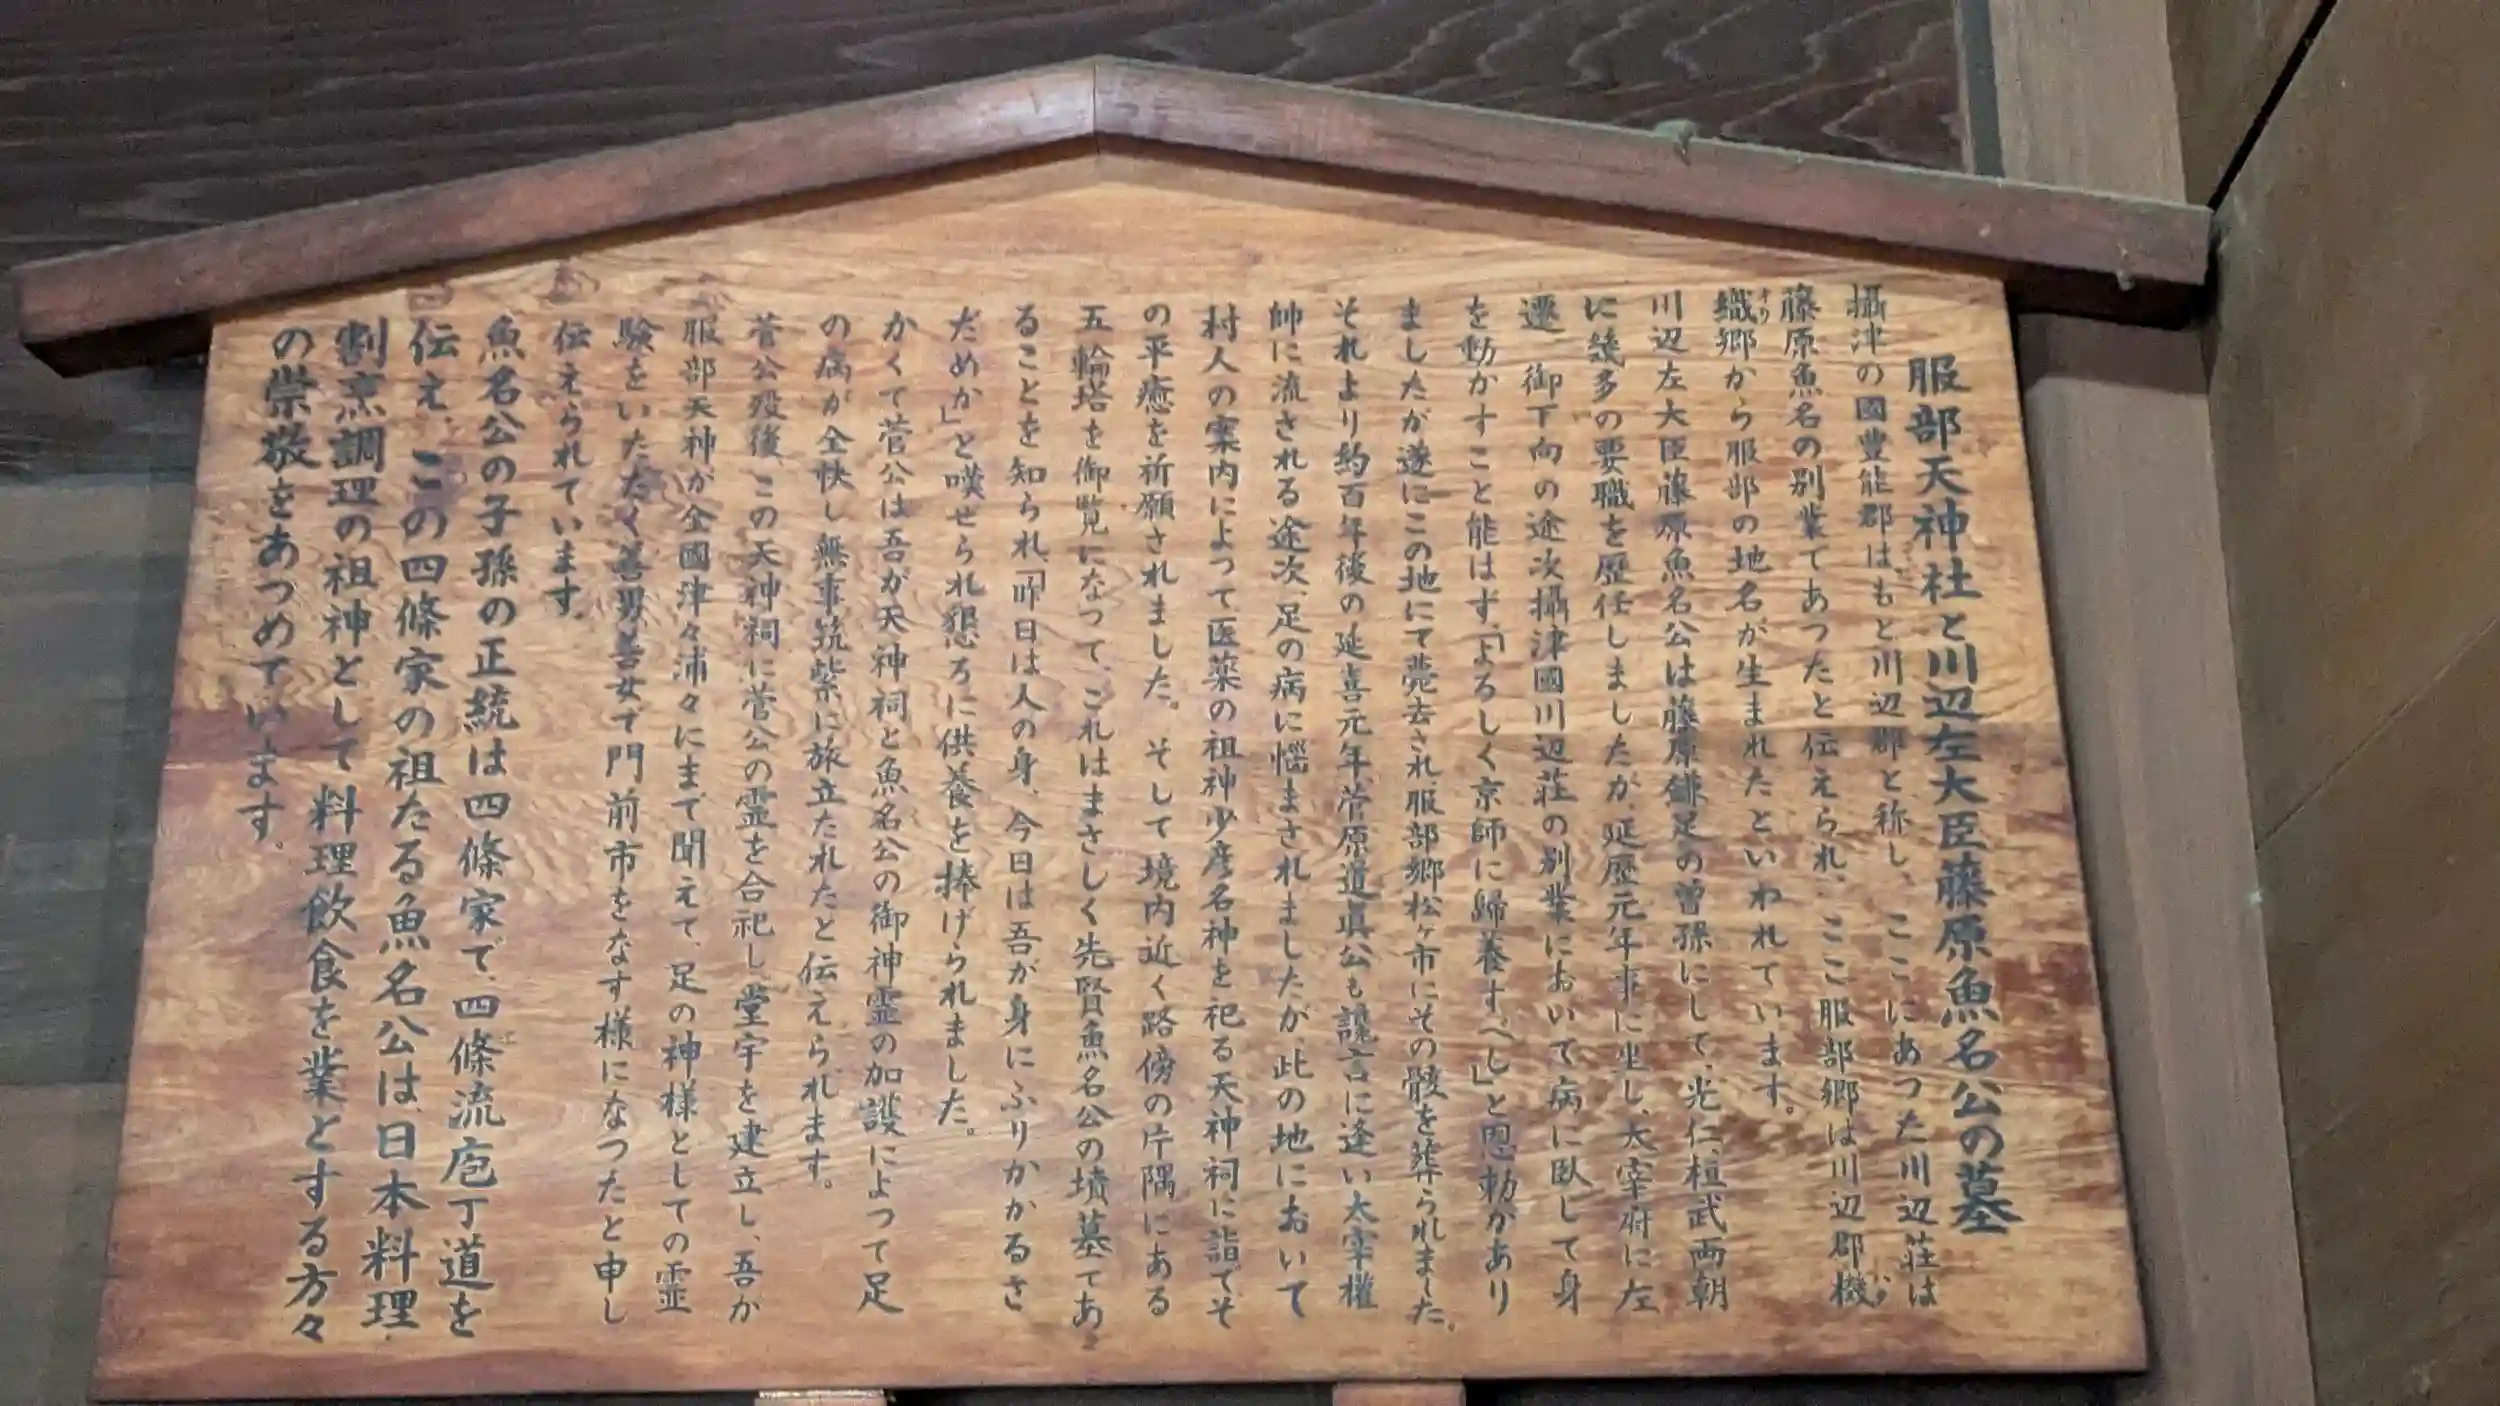 服部天神社と川辺左大臣藤原魚名公の墓
攝津の國豊能郡はもと川辺郡と称し、ここにあつた川辺荘は
藤原魚名の別業であつたと伝えられ、ここ服部郷は川辺郡機
織郷から服部の地名が生まれたといわれています。
川辺左大臣藤原魚名公は藤原鎌足の曽孫にして、光仁、桓武両朝
に幾多の要職を歴任しましたが、延歴元年事に坐し、大宰府に左
遷 御下向の途次攝津國川辺荘の別業において病に臥して身
を動かすこと能はず、「よるしく京師に歸養すべし」と恩勅があり
ましたが遂にこの地にて薨去され服部郷松ヶ市にその骸を葬られました。
それより約百年後の延喜元年菅原道眞公も讒言に逢い太宰権
帥に流される途次、足の病に惱まされましたが、此の地において
村人の案内によって、医薬の祖神少彦名神を祀る天神祠に詣でそ
の平癒を祈願されました。そして境内近く路傍の片隅にある
五輪塔を御覧になつて、これはまさしく先賢魚名公の墳墓であ
ることを知られ、「昨日は人の身、今日は吾が身にふりかかるさ
だめか」と嘆せられ懇ろに供養を捧げられました。
かくて菅公は吾が天神祠と魚名公の御神霊の加護によつて足
の病が全快し無事筑紫に旅立たれたと伝えられます。
菅公歿後、この天神祠に菅公の霊を合祀し、堂宇を建立し、吾が
服部天神が全國津々浦々にまで聞えて、足の神様としての霊
験をいただく善男善女で門前市をなす様になつたと申し
伝えられています。
魚名公の子孫の正統は四條家で、四條流庖丁道を
伝え、この四條家の祖たる魚名公は、日本料理
割烹調理の祖神として料理飲食を業とする方々
の崇敬をあつめています。